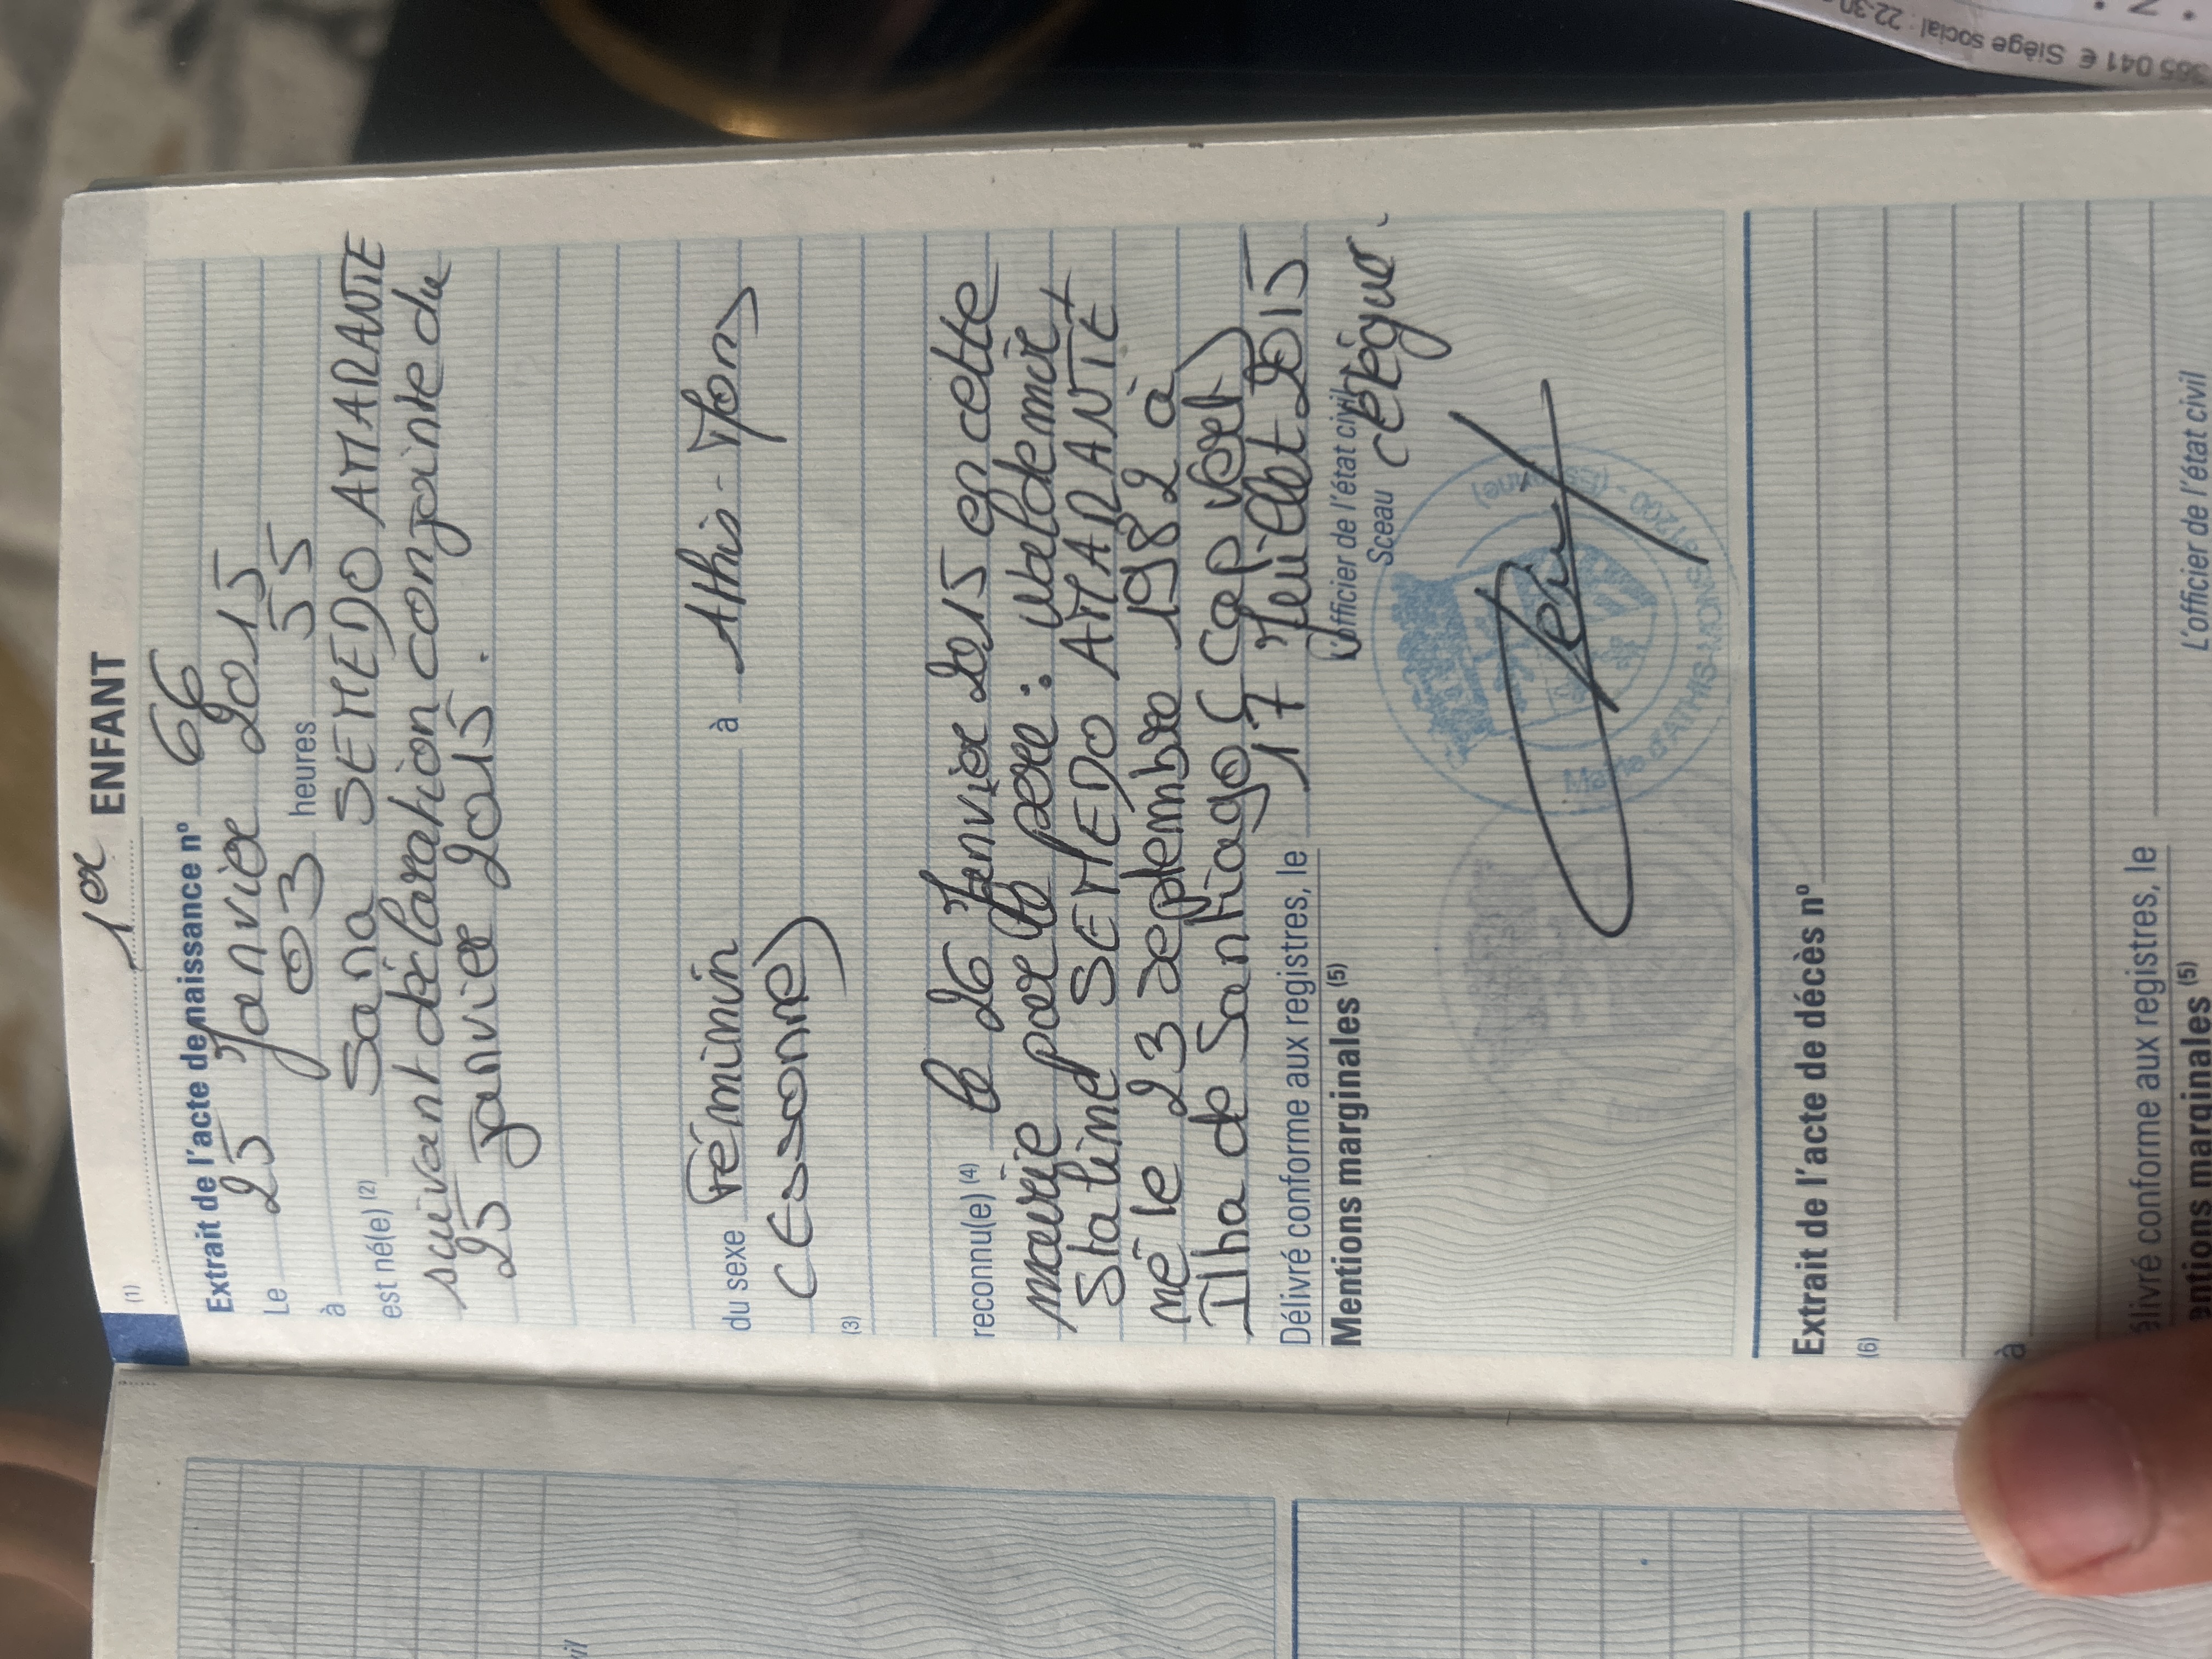 1er ENFANT
(1)
Extrait de l'acte de naissance n° 66
Le 25 Janvier 2015
à 03 heures 55
est né(e) (2) Sana SEMEDO AMARANTE
suivant déclaration conjointe du
25 janvier 2015.
du sexe Féminin à Athis-Mons
(Essonne)
(3)
reconnu(e) (4) le 26 Janvier 2015 en cette
mairie par le père : Waldemir
Staline SEMEDO AMARANTE
né le 23 septembre 1982 à
Ilha de Santiago (Cap vert)
Délivré conforme aux registres, le 17 Juillet 2015
Mentions marginales (5)
L'officier de l'état civil
Sceau
Mairie d'ATHIS-MONS - 91200 - (Essonne)
Extrait de l'acte de décès n°
(6)
à
Délivré conforme aux registres, le
L'officier de l'état civil
Mentions marginales (5)
365 041 € Siège social : 22-30